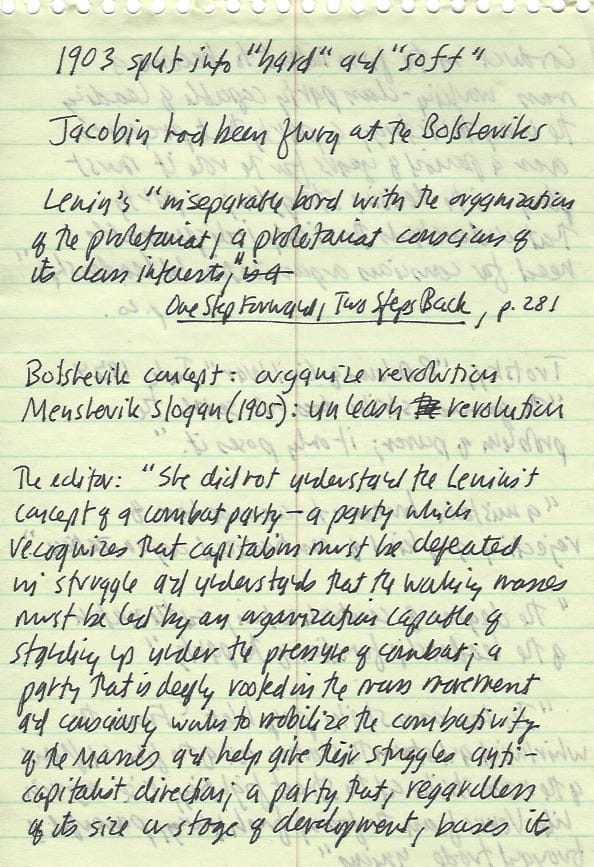 1903 split into "hard" and "soft"
Jacobin had been flung at the Bolsheviks
Lenin's "inseparable bond with the organization
of the proletariat, a proletariat conscious of
its class interests,"
One Step Forward, Two Steps Back, p. 281
Bolshevik concept: organize revolution
Menshevik slogan (1905): unleash revolution
The editor: "She did not understand the Leninist
concept of a combat party—a party which
recognizes that capitalism must be defeated
in struggle and understands that the working masses
must be led by an organization capable of
standing up under the pressure of combat; a
party that is deeply rooted in the mass movement
and consciously works to mobilize the combativity
of the masses and help give their struggles anti-
capitalist direction; a party that, regardless
of its size or stage of development, bases it